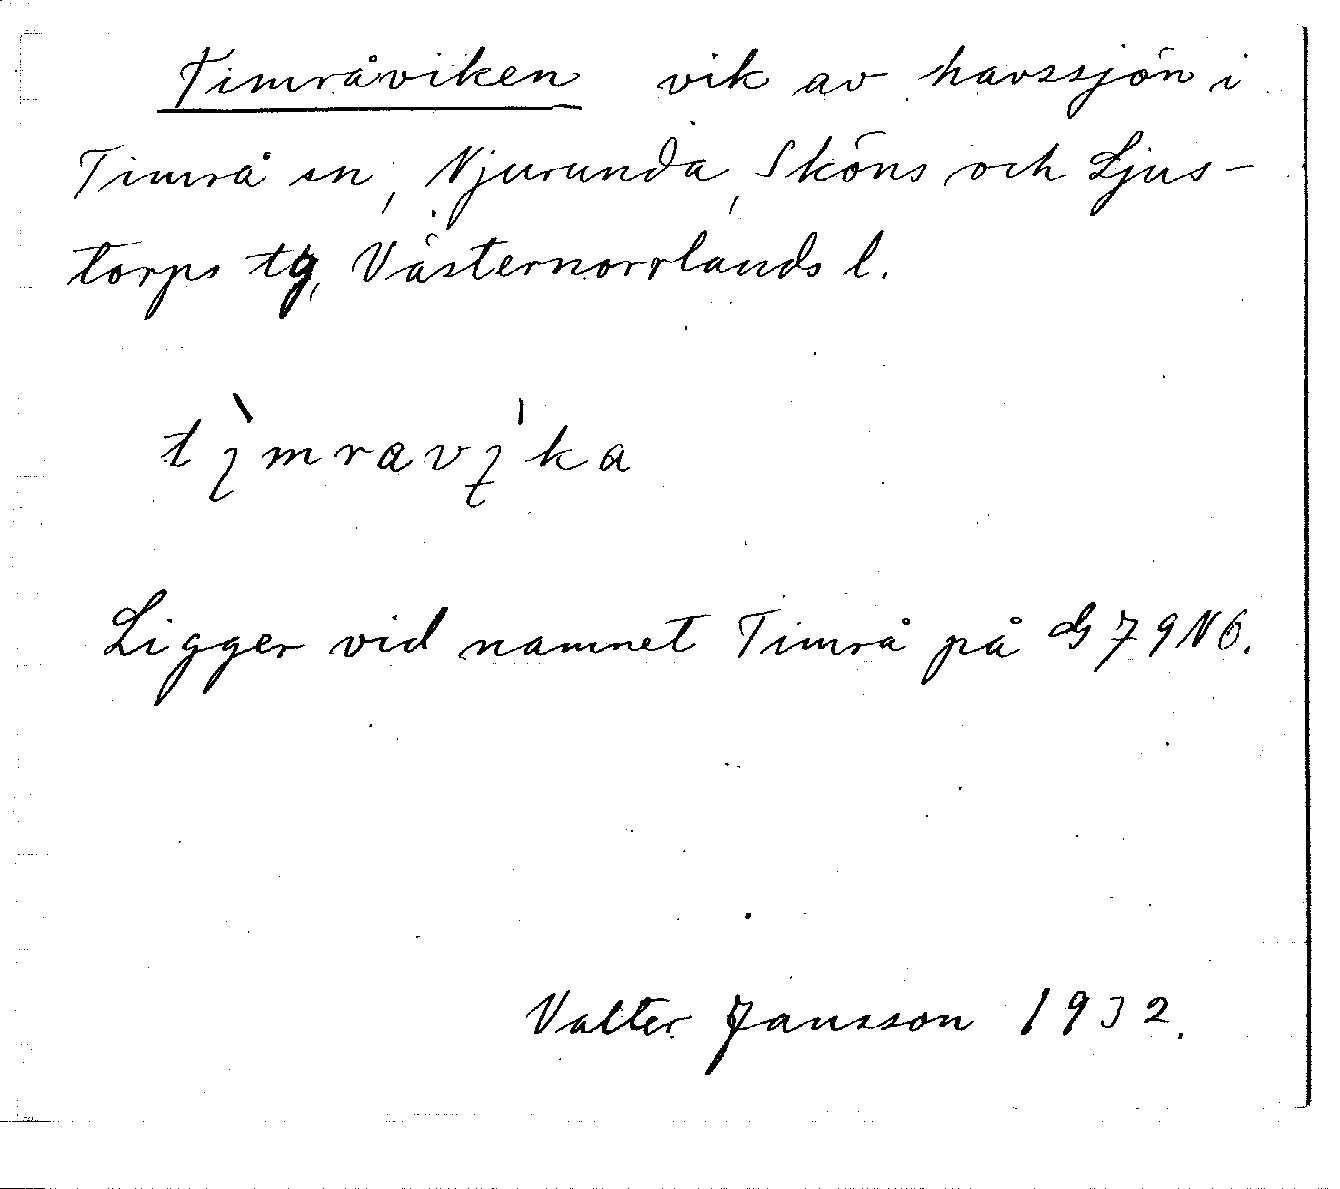 Timråviken vik av havssjön i
Timrå sn, Njurunda, Sköns och Ljus-
torps tg, Västernorrlands l.
tìmravi'ka
Ligger vid namnet Timrå på G 79 N6.
Valter Jansson 1932.